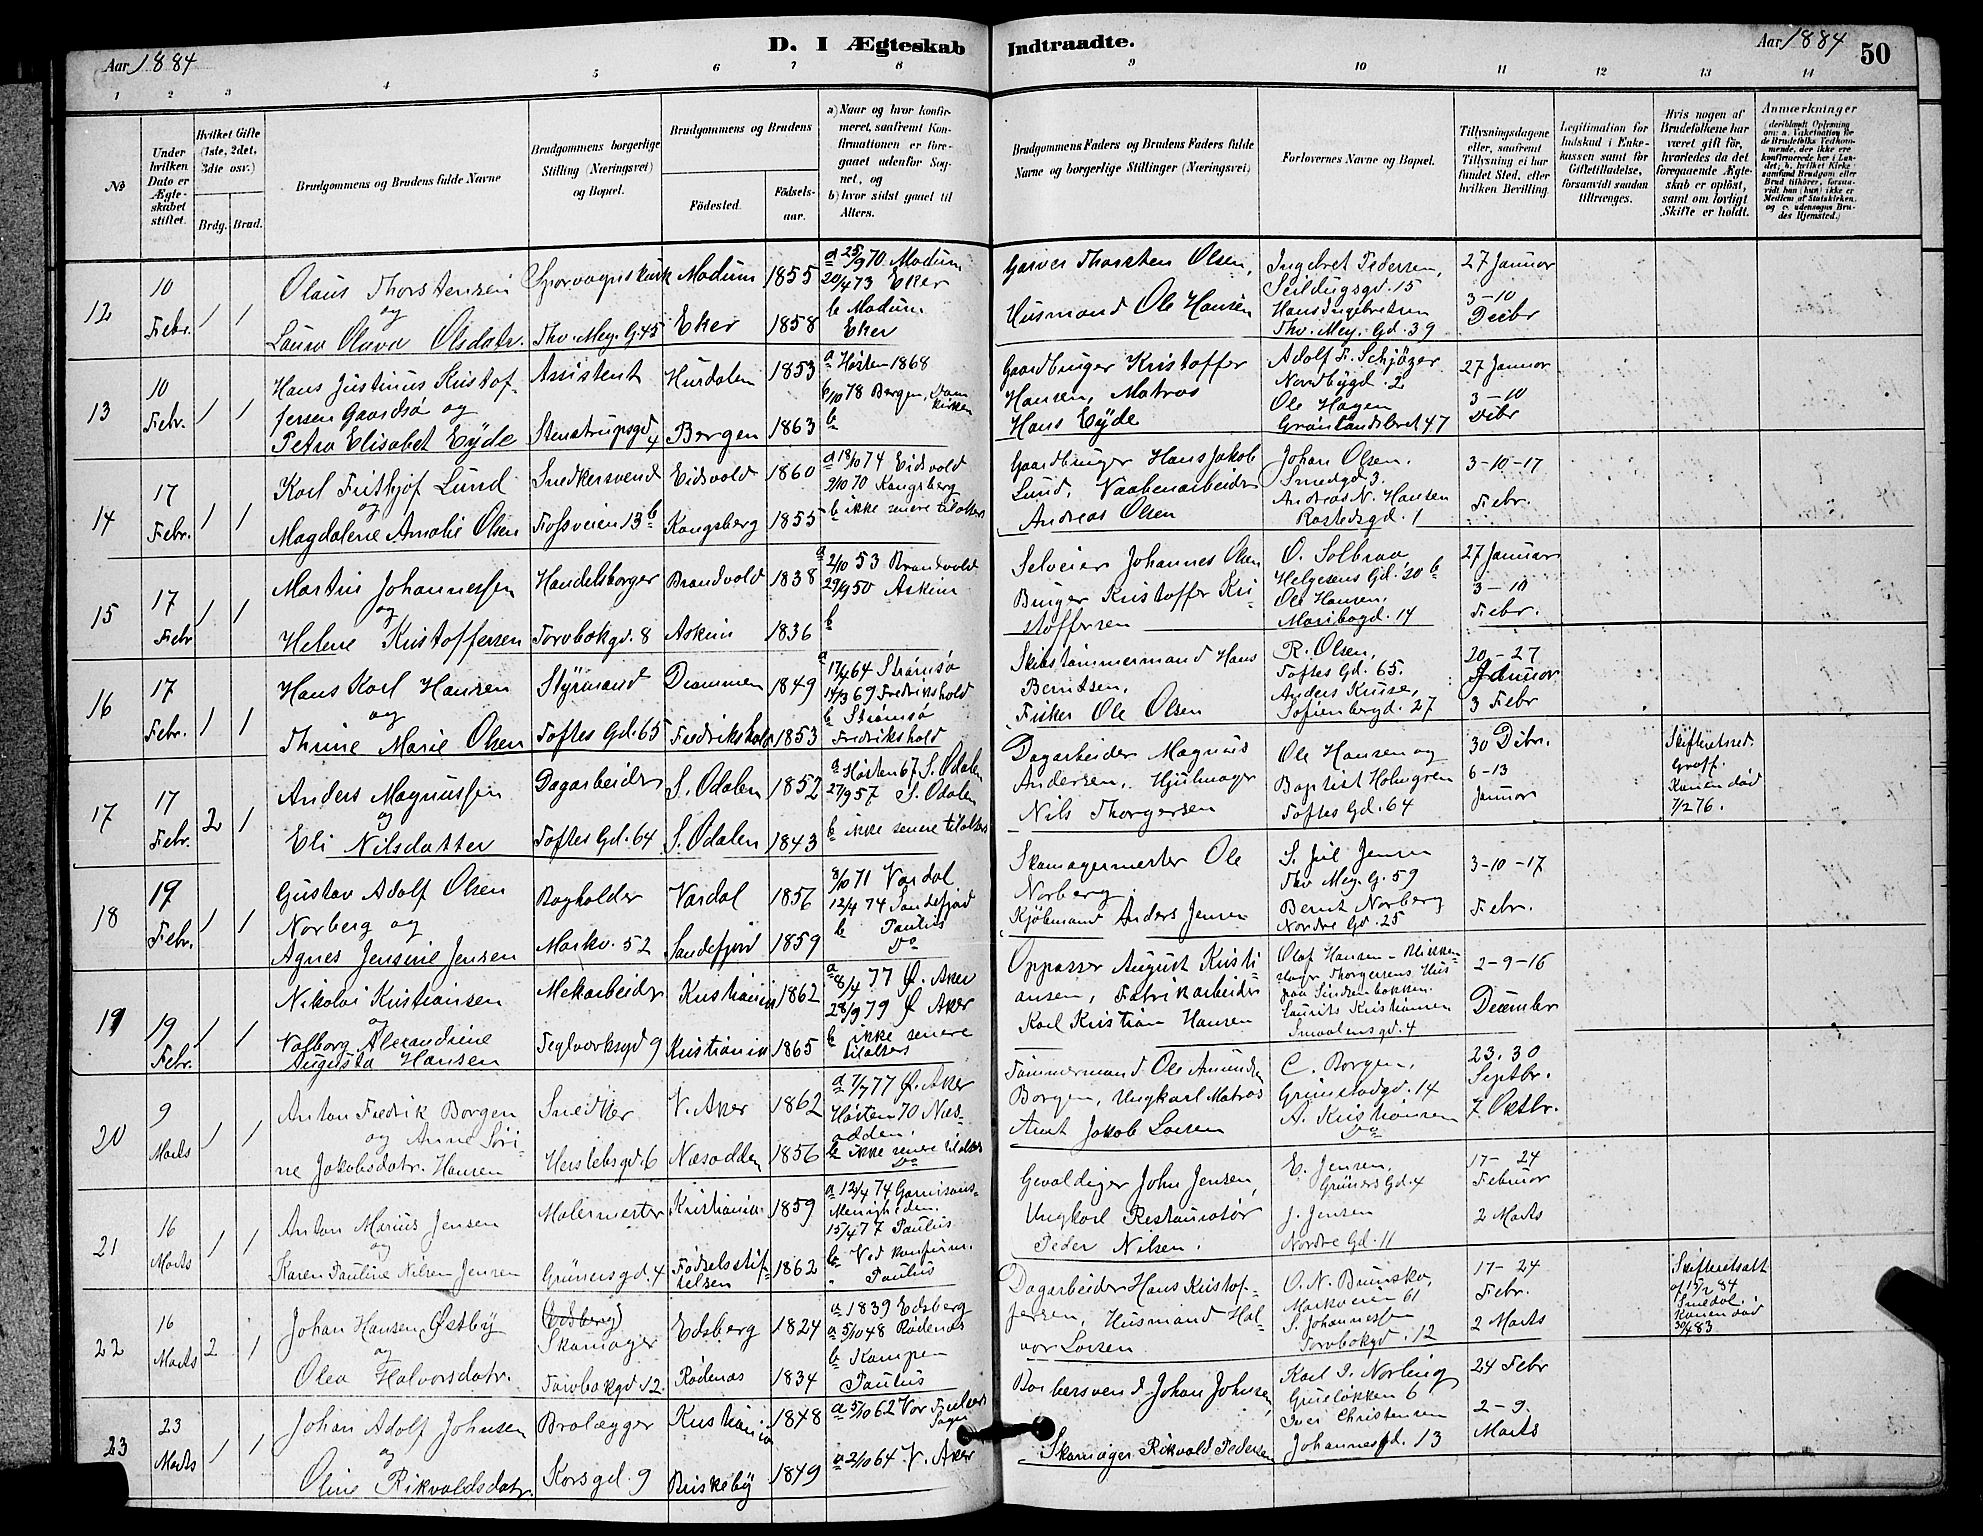 Aar 1884
D. I Ægteskab Indtraadte.
Aar 1884
50
1 2 3 4 5 6 7 8 9 10 11 12 13 14
No
Under hvilken Dato er Ægteskabet stiftet.
Hvilket Gifte (1ste, 2det, 3die osv.)
Brdg. Brud.
Brudgommens og Brudens fulde Navne
Brudgommens borgerlige Stilling (Næringsvei) og Bopæl.
Brudgommens og Brudens
Fødested. Fødselsaar.
a) Naar og hvor konfirmeret, saafremt Konfirmationen er foregaaet udenfor Sognet, og
b) hvor sidst gaaet til Alters.
Brudgommens Faders og Brudens Faders fulde Navne og borgerlige Stillinger (Næringsvei)
Forlovernes Navne og Bopæl.
Tillysningsdagene eller, saafremt Tillysning ei har fundet Sted, efter hvilken Bevilling.
Legitimation for Indskud i Enkekassen samt for Giftetilladelse, forsaavidt saadan tiltrænges.
Hvis nogen af Brudefolkene har været gift før, hvorledes da det foregaaende Ægteskab er opløst, samt om lovligt Skifte er holdt.
Anmærkninger
12
10 Febr.
1 1
Olaus Thorstensen
og
Laura Olava Olsdatr.
Sporvognskusk
Thv. Mey. G. 45
Modum 1855
Eker 1858
a 25/9 70 Modum
20/4 73 Eker
b Modum
Eker
Garver Thorsten Olsen,
Husmand Ole Hansen
Ingebret Pedersen,
Seildugsgd. 15
Hans Ingebretsen
Thv. Mey. Gd. 39
27 Januar
3-10
13
10 Febr.
1 1
Hans Justinus Kristof-
fersen Gaardsø og
Petra Elisabet Eyde
Assistent
Stenstrupsgd 4
Hurdalen 1853
Bergen 1863
a Høsten 1868
6/10 78 Bergen, Domkirken
b
Gaardbruger Kristoffer
Hansen, Matros
Hans Eyde
Adolf F. Schjøzer
Nordbygd. 2
Ole Hagen
Grønlandsleret 47
27 Januar
3-10
14
17 Febr.
1 1
Karl Frithjof Lund
og
Magdalene Amalie Olsen
Snedkersvend
Fossveien 13 b
Eidsvold 1860
Kongsberg 1855
a 18/10 74 Eidsvold
9/10 70 Kongsberg
b ikke senere tilalters
Gaardbruger Hans Jakob
Lund, Vaabenarbeider
Andreas Olsen
Johan Olsen,
Smedgd 3.
Andreas N. Hansen
Rostedsgd. 1
3-10-17
Febr.
15
17 Febr
1 1
Martin Johannessen
og
Helene Kristoffersen
Handelsborger
Torvbakgd. 8
Brandvold 1838
Askim 1836
a 2/10 53 Brandvold
29/9 50 Askim
b
Selveier Johannes Olsen
Bruger Kristoffer Kri-
stoffersen
O. Solbraa
Helgesens Gd. 20 b
Ole Hansen,
Maribogd. 14
27 Januar
3-10
Febr.
16
17 Febr.
1 1
Hans Karl Hansen
og
Thrine Marie Olsen
Styrmand
Toftes Gd. 65
Drammen 1849
Fredrikshald 1853
a 17/4 64 Strømsø
14/3 69 Fredrikshald
b Strømsø
Fredrikshald
Skibstømmermand Hans
Berntsen,
Fisker Ole Olsen
R. Olsen,
Toftes Gd. 65.
Anders Kruse,
Sofienbergd. 27
20-27
Januar
3 Febr
17
17 Febr.
2 1
Anders Magnussen
og
Eli Nilsdatter
Dagarbeider
Toftes Gd. 64
S. Odalen 1852
S. Odalen 1843
a Høsten 67 S. Odalen
27/9 57 S. Odalen
b ikke senere tilalters
Dagarbeider Magnus
Andersen, Hjulmager
Nils Thorgersen
Ole Hansen og
Baptist Holmgren
Toftes Gd. 64
30 Debr.
6-13
Januar
Konen død
7/2 76.
18
19 Febr.
1 1
Gustav Adolf Olsen
Norberg og
Agnes Jensine Jensen
Bogholder
Markv. 52
Vardal 1856
Sandefjord 1859
8/10 71 Vardal
12/4 74 Sandefjord
b Paulus
Do
Skomagermester Ole
Norberg.
Kjøbmand Anders Jensen
S. Juul Jensen
Thv Mey. G. 59
Bernt Norberg
Nordre Gd. 25
3-10-17
Febr.
19
19 Febr.
1 1
Nikolai Kristiansen
og
Valborg Alexandrine
Augusta Hansen
Mekarbeider
Teglverksgd 9
Kristiania 1862
Kristiania 1865
a 8/4 77 Ø. Aker
28/9 79 Ø Aker
b ikke senere
tilalters
Oppasser August Kristi-
ansen, Fabrikarbeider
Karl Kristian Hansen
Olaf Hansen - Blikken-
slager Thorgersens Hus
paa Sinsenbakken.
Laurits Kristiansen
Smaalensgd. 4
2-9-16
December
20
9 Marts
1 1
Anton Fredrik Borgen
og Anne Søri-
ne Jakobsdatr. Hansen
Snedker
Herslebsgd. 6
V. Aker 1862
Næsodden 1856
a 7/7 77 Ø. Aker
Høsten 70 Næs-
odden.
b ikke senere tilalters
Do
Tømmermand Ole Amundsen
Borgen, Ungkarl Matros
Arnt Jakob Larsen
C. Borgen,
Grimstadgd. 14
A. Kristiansen
Do
23. 30
Septbr.
7 Oktbr.
21
16 Marts
1 1
Anton Marius Jensen
og
Karen Pauline Nilsen Jensen
Malermester
Grünersgd. 4
Kristiania 1859
Fødselsstif-
telsen 1862
a 12/4 74 Garnisons-
Menigheden.
15/4 77 Paulus
b Ved konfirm.
" Paulus
Gevaldiger John Jensen,
Ungkarl Restauratør
Peder Nilsen.
E. Jensen,
Grüners Gd. 4
J. Jensen
Nordre Gd. 11
17-24
Februar
2 Marts
22
16 Marts
2 1
Johan Hansen Østby
og
Olea Halvorsdatr.
Skomager
Torvbakgd. 12.
Edsberg 1824
Rødenæs 1834
a 1839 Edsberg
a 5/10 48 Rødenæs
b Kampen
Paulus
Dagarbeider Hans Kristof-
fersen, Husmand Hal-
vor Larsen
O. N. Brunsko,
Markveien 61
S. Johannessen
Torvbakgd. 12
17-24
Febr.
2 Marts
Skifteretsatt
af 15/2 84
Konen død
30/4 83.
23
23 Marts
1 1
Johan Adolf Johnsen
og
Oline Rikvoldsdatr.
Brolægger
Korsgd. 9
Kristiania 1848
Briskeby 1849
a 5/10 62 Vor Frelsers
a 2/10 64 V. Aker
Barbersvend Johan Johnsen,
Skomager Rikvold Pedersen
Karl I. Norling
Grüneløkken 6
Iver Christensen
Johannesgd. 13
24 Febr
2-9.
Marts